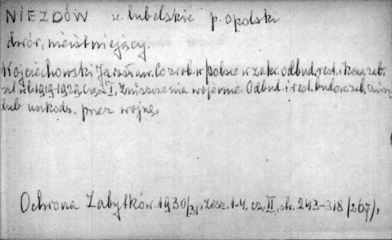 NIEZDÓW w. lubelskie p. opolski
dwór, nieistniejący.
Wojciechowski Jarosław. Co zrob. w Polsce w zakr. odbud. rest. i kons. zab.
1919-1929 Część I, Zniszczenia wojenne. Odbud. i rest. budow. zab.
lub uszkodz. przez wojnę,
Ochrona Zabytków. 1930/31, zesz. 1-4, cz. II, str. 243-318 (267),